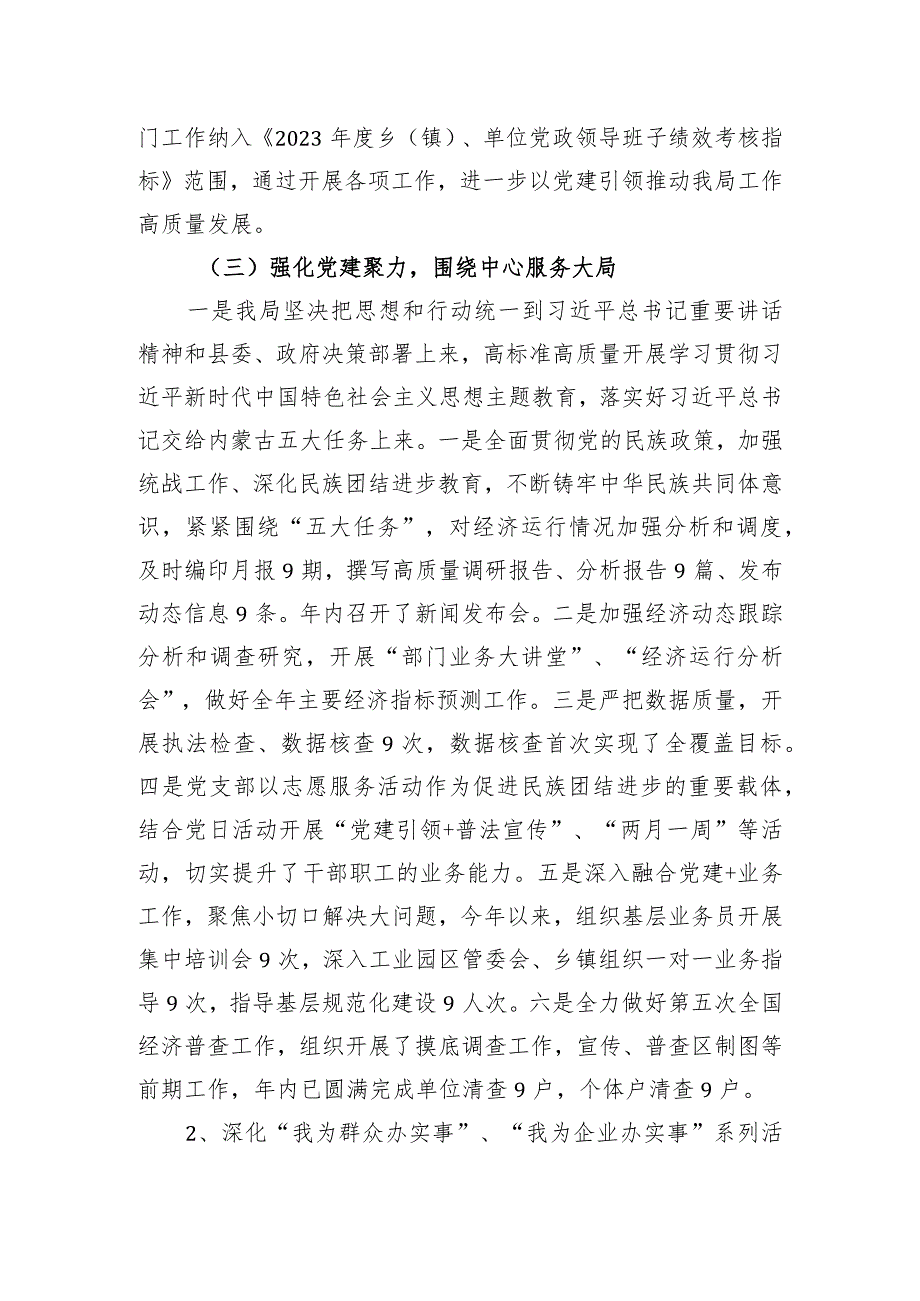 门工作纳入《2023 年度乡（镇）、单位党政领导班子绩效考核指
标》范围，通过开展各项工作，进一步以党建引领推动我局工作
高质量发展。
（三）强化党建聚力，围绕中心服务大局
一是我局坚决把思想和行动统一到习近平总书记重要讲话
精神和县委、政府决策部署上来，高标准高质量开展学习贯彻习
近平新时代中国特色社会主义思想主题教育，落实好习近平总书
记交给内蒙古五大任务上来。一是全面贯彻党的民族政策，加强
统战工作、深化民族团结进步教育，不断铸牢中华民族共同体意
识，紧紧围绕“五大任务”，对经济运行情况加强分析和调度，
及时编印月报 9 期，撰写高质量调研报告、分析报告 9 篇、发布
动态信息 9 条。年内召开了新闻发布会。二是加强经济动态跟踪
分析和调查研究，开展“部门业务大讲堂”、“经济运行分析
会”，做好全年主要经济指标预测工作。三是严把数据质量，开
展执法检查、数据核查 9 次，数据核查首次实现了全覆盖目标。
四是党支部以志愿服务活动作为促进民族团结进步的重要载体，
结合党日活动开展“党建引领+普法宣传”、“两月一周”等活
动，切实提升了干部职工的业务能力。五是深入融合党建+业务
工作，聚焦小切口解决大问题，今年以来，组织基层业务员开展
集中培训会 9 次，深入工业园区管委会、乡镇组织一对一业务指
导 9 次，指导基层规范化建设 9 人次。六是全力做好第五次全国
经济普查工作，组织开展了摸底调查工作，宣传、普查区制图等
前期工作，年内已圆满完成单位清查 9 户，个体户清查 9 户。
2、深化“我为群众办实事”、“我为企业办实事”系列活